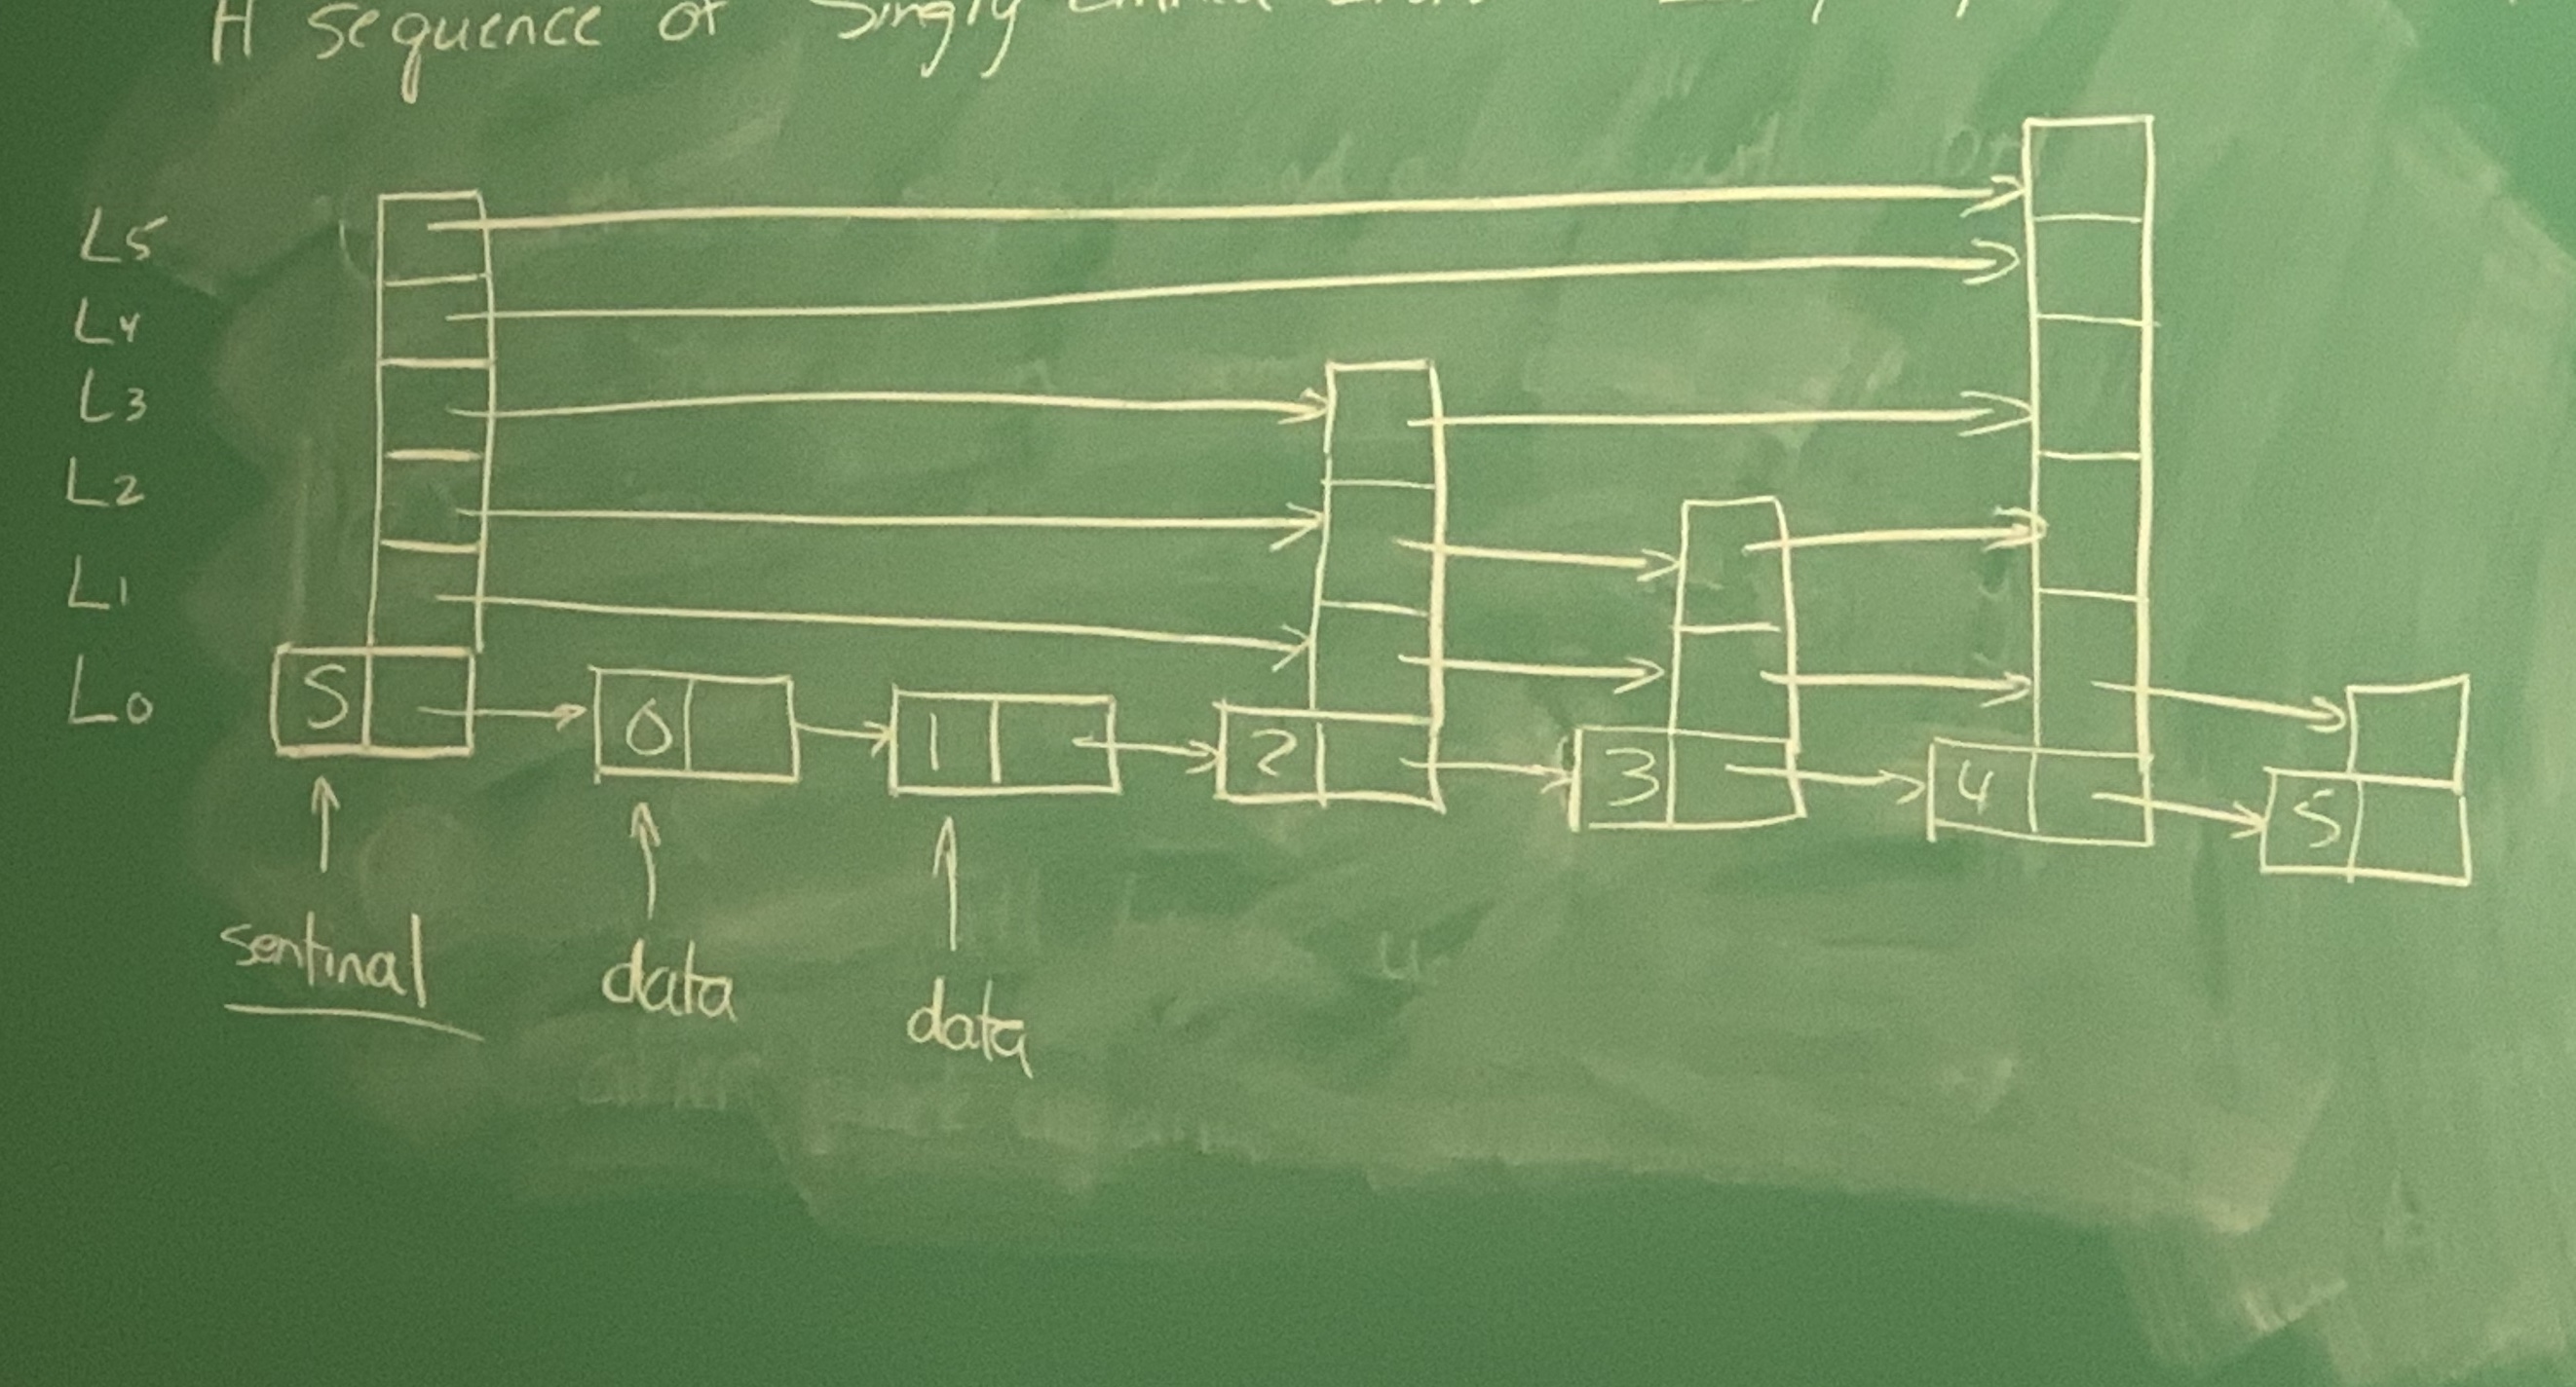 A sequence of Singly
L5
L4
L3
L2
L1
L0
S 0 1 2 3 4 5
sentinal data data